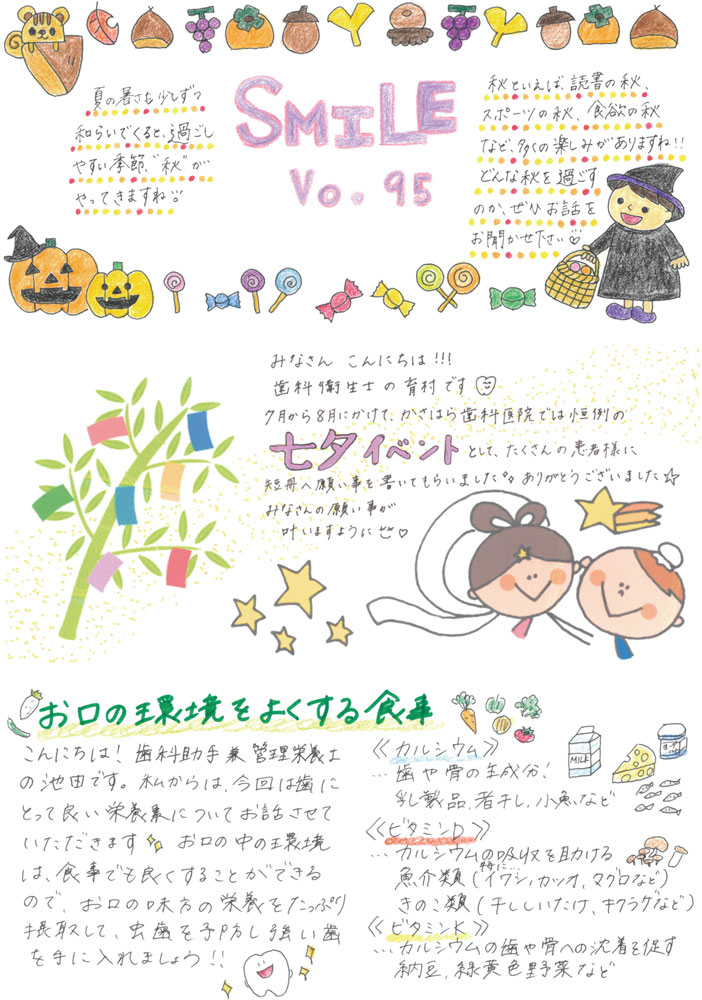 夏の暑さも少しずつ
和らいでくると、過ごし
やすい季節、"秋"が
やってきますね
SMILE
Vo. 95
秋といえば、読書の秋、
スポーツの秋、食欲の秋
など、多くの楽しみがありますね!!
どんな秋を過ごす
のか、ぜひお話を
お聞かせ下さい
みなさん こんにちは!!!
歯科衛生士の育村です
7月から8月にかけて、かさはら歯科医院では恒例の
七夕イベントとして、たくさんの患者様に
短冊へ願い事を書いてもらいました ありがとうございました☆
みなさんの願い事が
叶いますように
お口の環境をよくする食事
こんにちは! 歯科助手兼管理栄養士
の池田です。私からは、今回は歯に
とって良い栄養素についてお話させて
いただきます お口の中の環境
は、食事でも良くすることができる
ので、お口の味方の栄養をたっぷり
摂取して、虫歯を予防し強い歯
を手に入れましょう!!
MILK
ヨーグルト
《カルシウム》
…歯や骨の主成分!
乳製品、煮干し、小魚など
《ビタミンD》
…カルシウムの吸収を助ける
魚介類(特に…イワシ、カツオ、マグロなど)
きのこ類(干ししいたけ、キクラゲなど)
《ビタミンK》
…カルシウムの歯や骨への沈着を促す
納豆、緑黄色野菜など